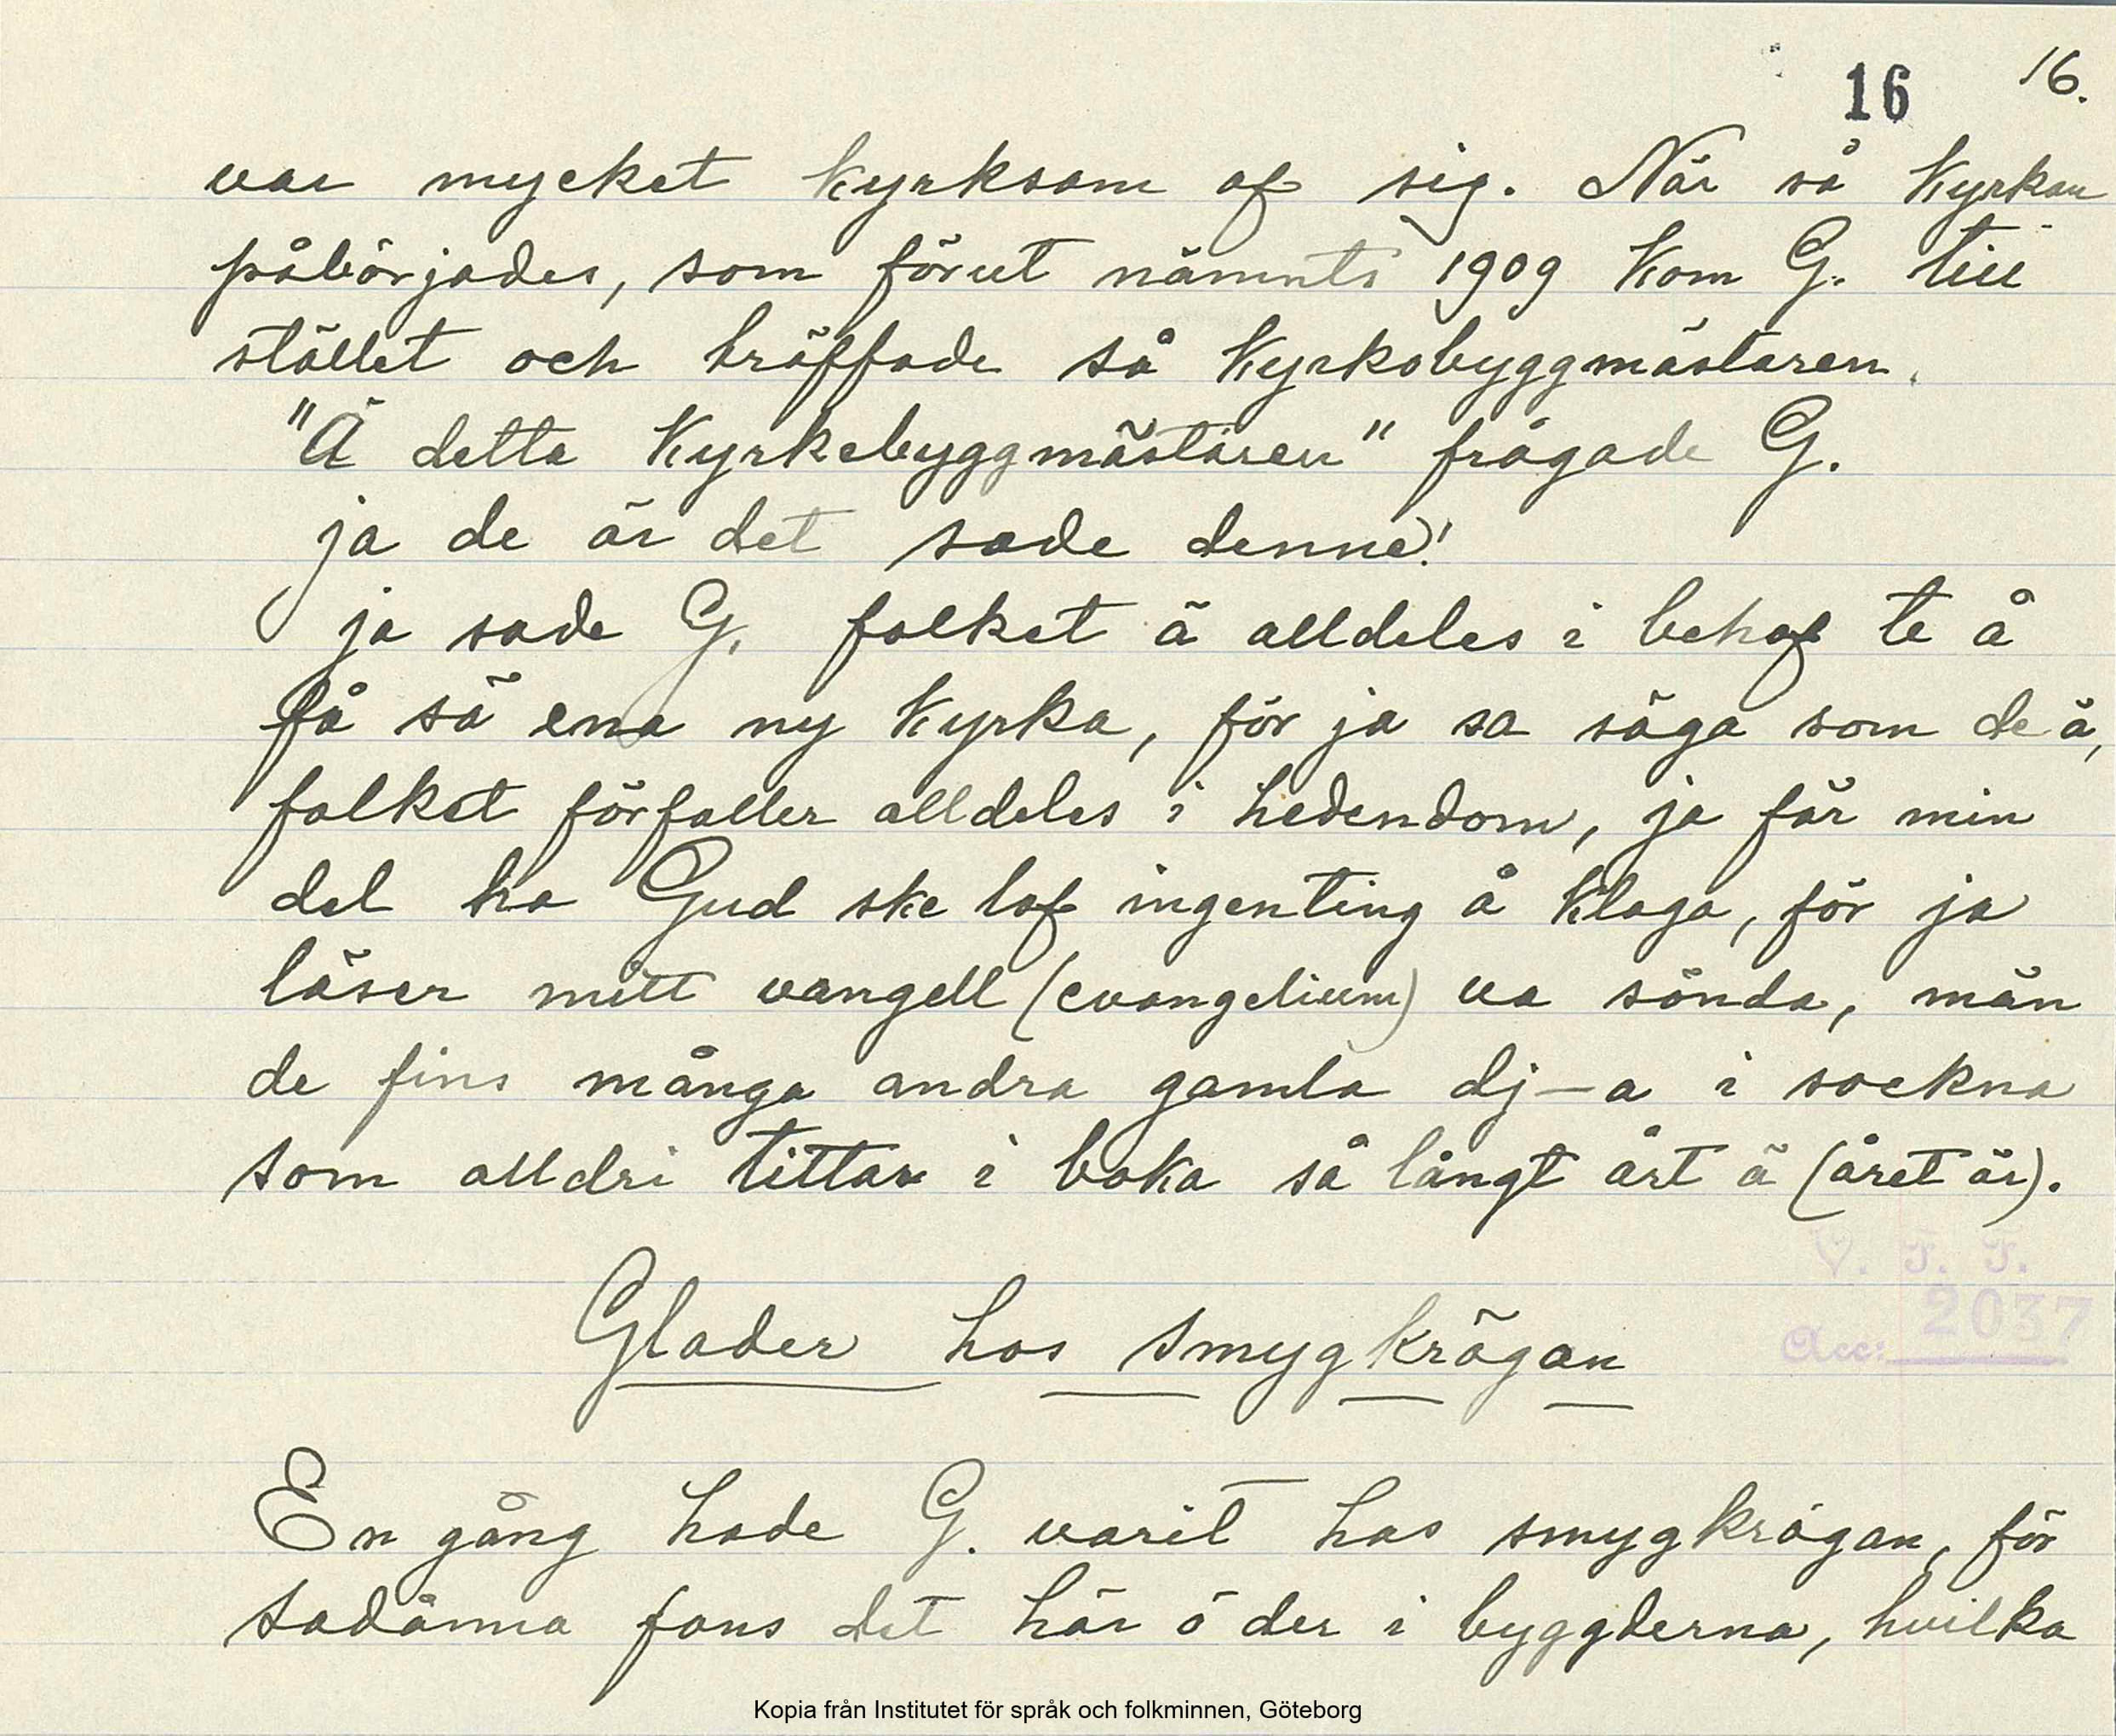 16 16.
var mycket kyrksam af sig. När så kyrkan
påbörjades, som förut nämnts 1909 kom G. till
stället och träffade så kyrkobyggmästaren.
"Ä detta kyrkebyggmästaren" frågade G.
ja de är det sade denne!
ja sade G. folket ä alldeles i behof te å
få sä ena ny kyrka, för ja sa säga som de ä,
folket förfaller alldeles i hedendom, ja för min
del ha Gud ske lof ingenting å klaga, för ja
läser mitt vangell (evangelium) va sönda, män
de fins många andra gamla dj-a i sockna
som alldri tittar i boka så långt årt ä (året är).
V. F. F.
2037
Acc:
Glader hos smygkrögan
En gång hade G. varit hos smygkrögan, för
sadänna fans det här ö der i byggderna, hvilka
Kopia från Institutet för språk och folkminnen, Göteborg